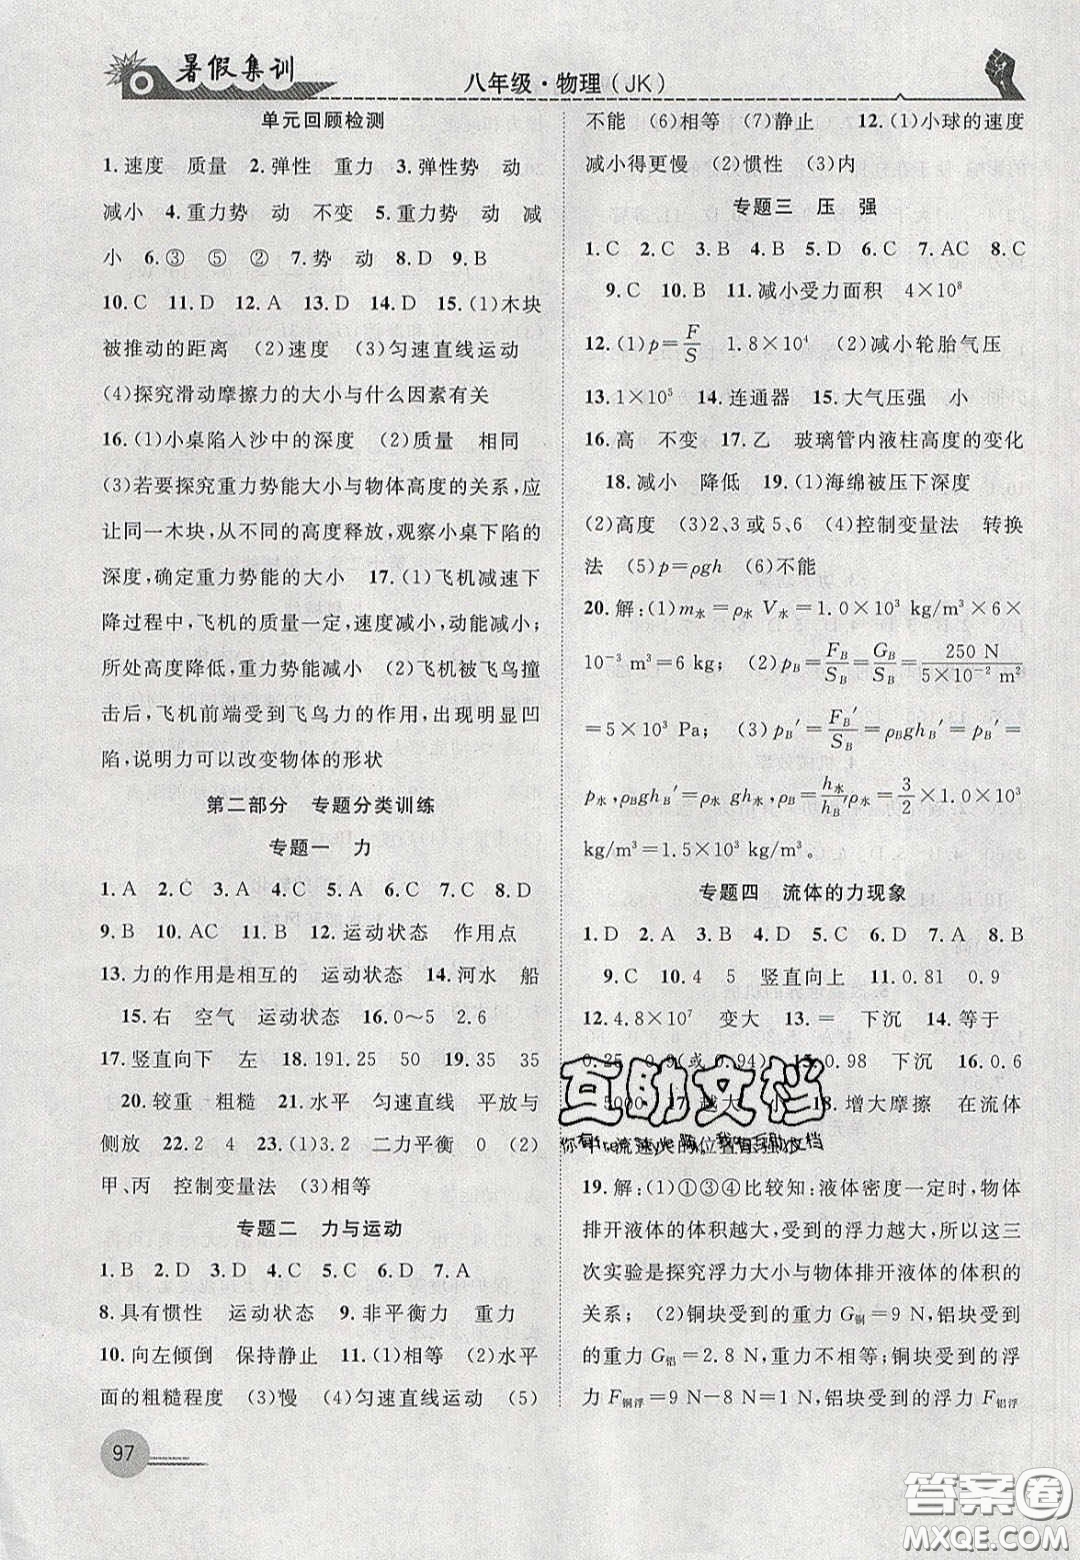 暑假集训
八年级·物理(JK)
单元回顾检测
1.速度 质量 2.弹性 重力 3.弹性势 动
减小 4.重力势 动 不变 5.重力势 动 减
小 6.③ ⑤ ② 7.势 动 8.D 9.B
10.C 11.D 12.A 13.D 14.D 15.(1)木块
被推动的距离 (2)速度 (3)匀速直线运动
(4)探究滑动摩擦力的大小与什么因素有关
16.(1)小桌陷入沙中的深度 (2)质量 相同
(3)若要探究重力势能大小与物体高度的关系,应
让同一木块,从不同的高度释放,观察小桌下陷的
深度,确定重力势能的大小 17.(1)飞机减速下
降过程中,飞机的质量一定,速度减小,动能减小;
所处高度降低,重力势能减小 (2)飞机被飞鸟撞
击后,飞机前端受到飞鸟力的作用,出现明显凹
陷,说明力可以改变物体的形状
第二部分 专题分类训练
专题一 力
1.A 2.C 3.A 4.C 5.C 6.A 7.C 8.D
9.B 10.AC 11.B 12.运动状态 作用点
13.力的作用是相互的 运动状态 14.河水 船
15.右 空气 运动状态 16.0~5 2.6
17.竖直向下 左 18.191.25 50 19.35 35
20.较重 粗糙 21.水平 匀速直线 平放与
侧放 22.2 4 23.(1)3.2 二力平衡 0 (2)
甲、丙 控制变量法 (3)相等
专题二 力与运动
1.B 2.D 3.C 4.C 5.D 6.D 7.A
8.具有惯性 运动状态 9.非平衡力 重力
10.向左倾倒 保持静止 11.(1)相等 (2)水平
面的粗糙程度 (3)慢 (4)匀速直线运动 (5)
97
不能 (6)相等 (7)静止 12.(1)小球的速度
减小得更慢 (2)惯性 (3)内
专题三 压 强
1.C 2.C 3.B 4.B 5.D 6.C 7.AC 8.C
9.C 10.B 11.减小受力面积 4×10⁸
12.(1)p=F/S 1.8×10⁴ (2)减小轮胎气压
13.1×10⁵ 14.连通器 15.大气压强 小
16.高 不变 17.乙 玻璃管内液柱高度的变化
18.减小 降低 19.(1)海绵被压下深度
(2)高度 (3)2、3或5、6 (4)控制变量法 转换
法 (5)p=ρgh (6)不能
20.解:(1)m水=ρ水 V水=1.0×10³ kg/m³×6×
10⁻³ m³=6 kg; (2)pB=FB/SB=GB/SB=250 N/5×10⁻² m²
=5×10³ Pa; (3)pB′=FB′/SB=ρBghB′=pB′=
p水,ρBghB′=ρ水 gh水,ρB=h水/hB′=3/2×1.0×10³
kg/m³=1.5×10³ kg/m³。
专题四 流体的力现象
1.D 2.A 3.A 4.D 5.C 6.D 7.D 8.B
9.C 10.4 5 竖直向上 11.0.81 0.9
12.4.8×10⁷ 变大 13.= 下沉 14.等于
0.25 0.9(或0.94) 15.0.98 下沉 16.0.6
5000 17.越大 小 18.增大摩擦 在流体
互助文档
19.解:(1)①③④比较知:液体密度一定时,物体
排开液体的体积越大,受到的浮力越大,所以这三
次实验是探究浮力大小与物体排开液体的体积的
关系; (2)铜块受到的重力G铜=9 N,铝块受到
的重力G铝=2.8 N,铜块受到的浮
力F铜浮=9 N-8 N=1 N,铝块受到的浮力F铝浮
答案圈
MXQE.COM